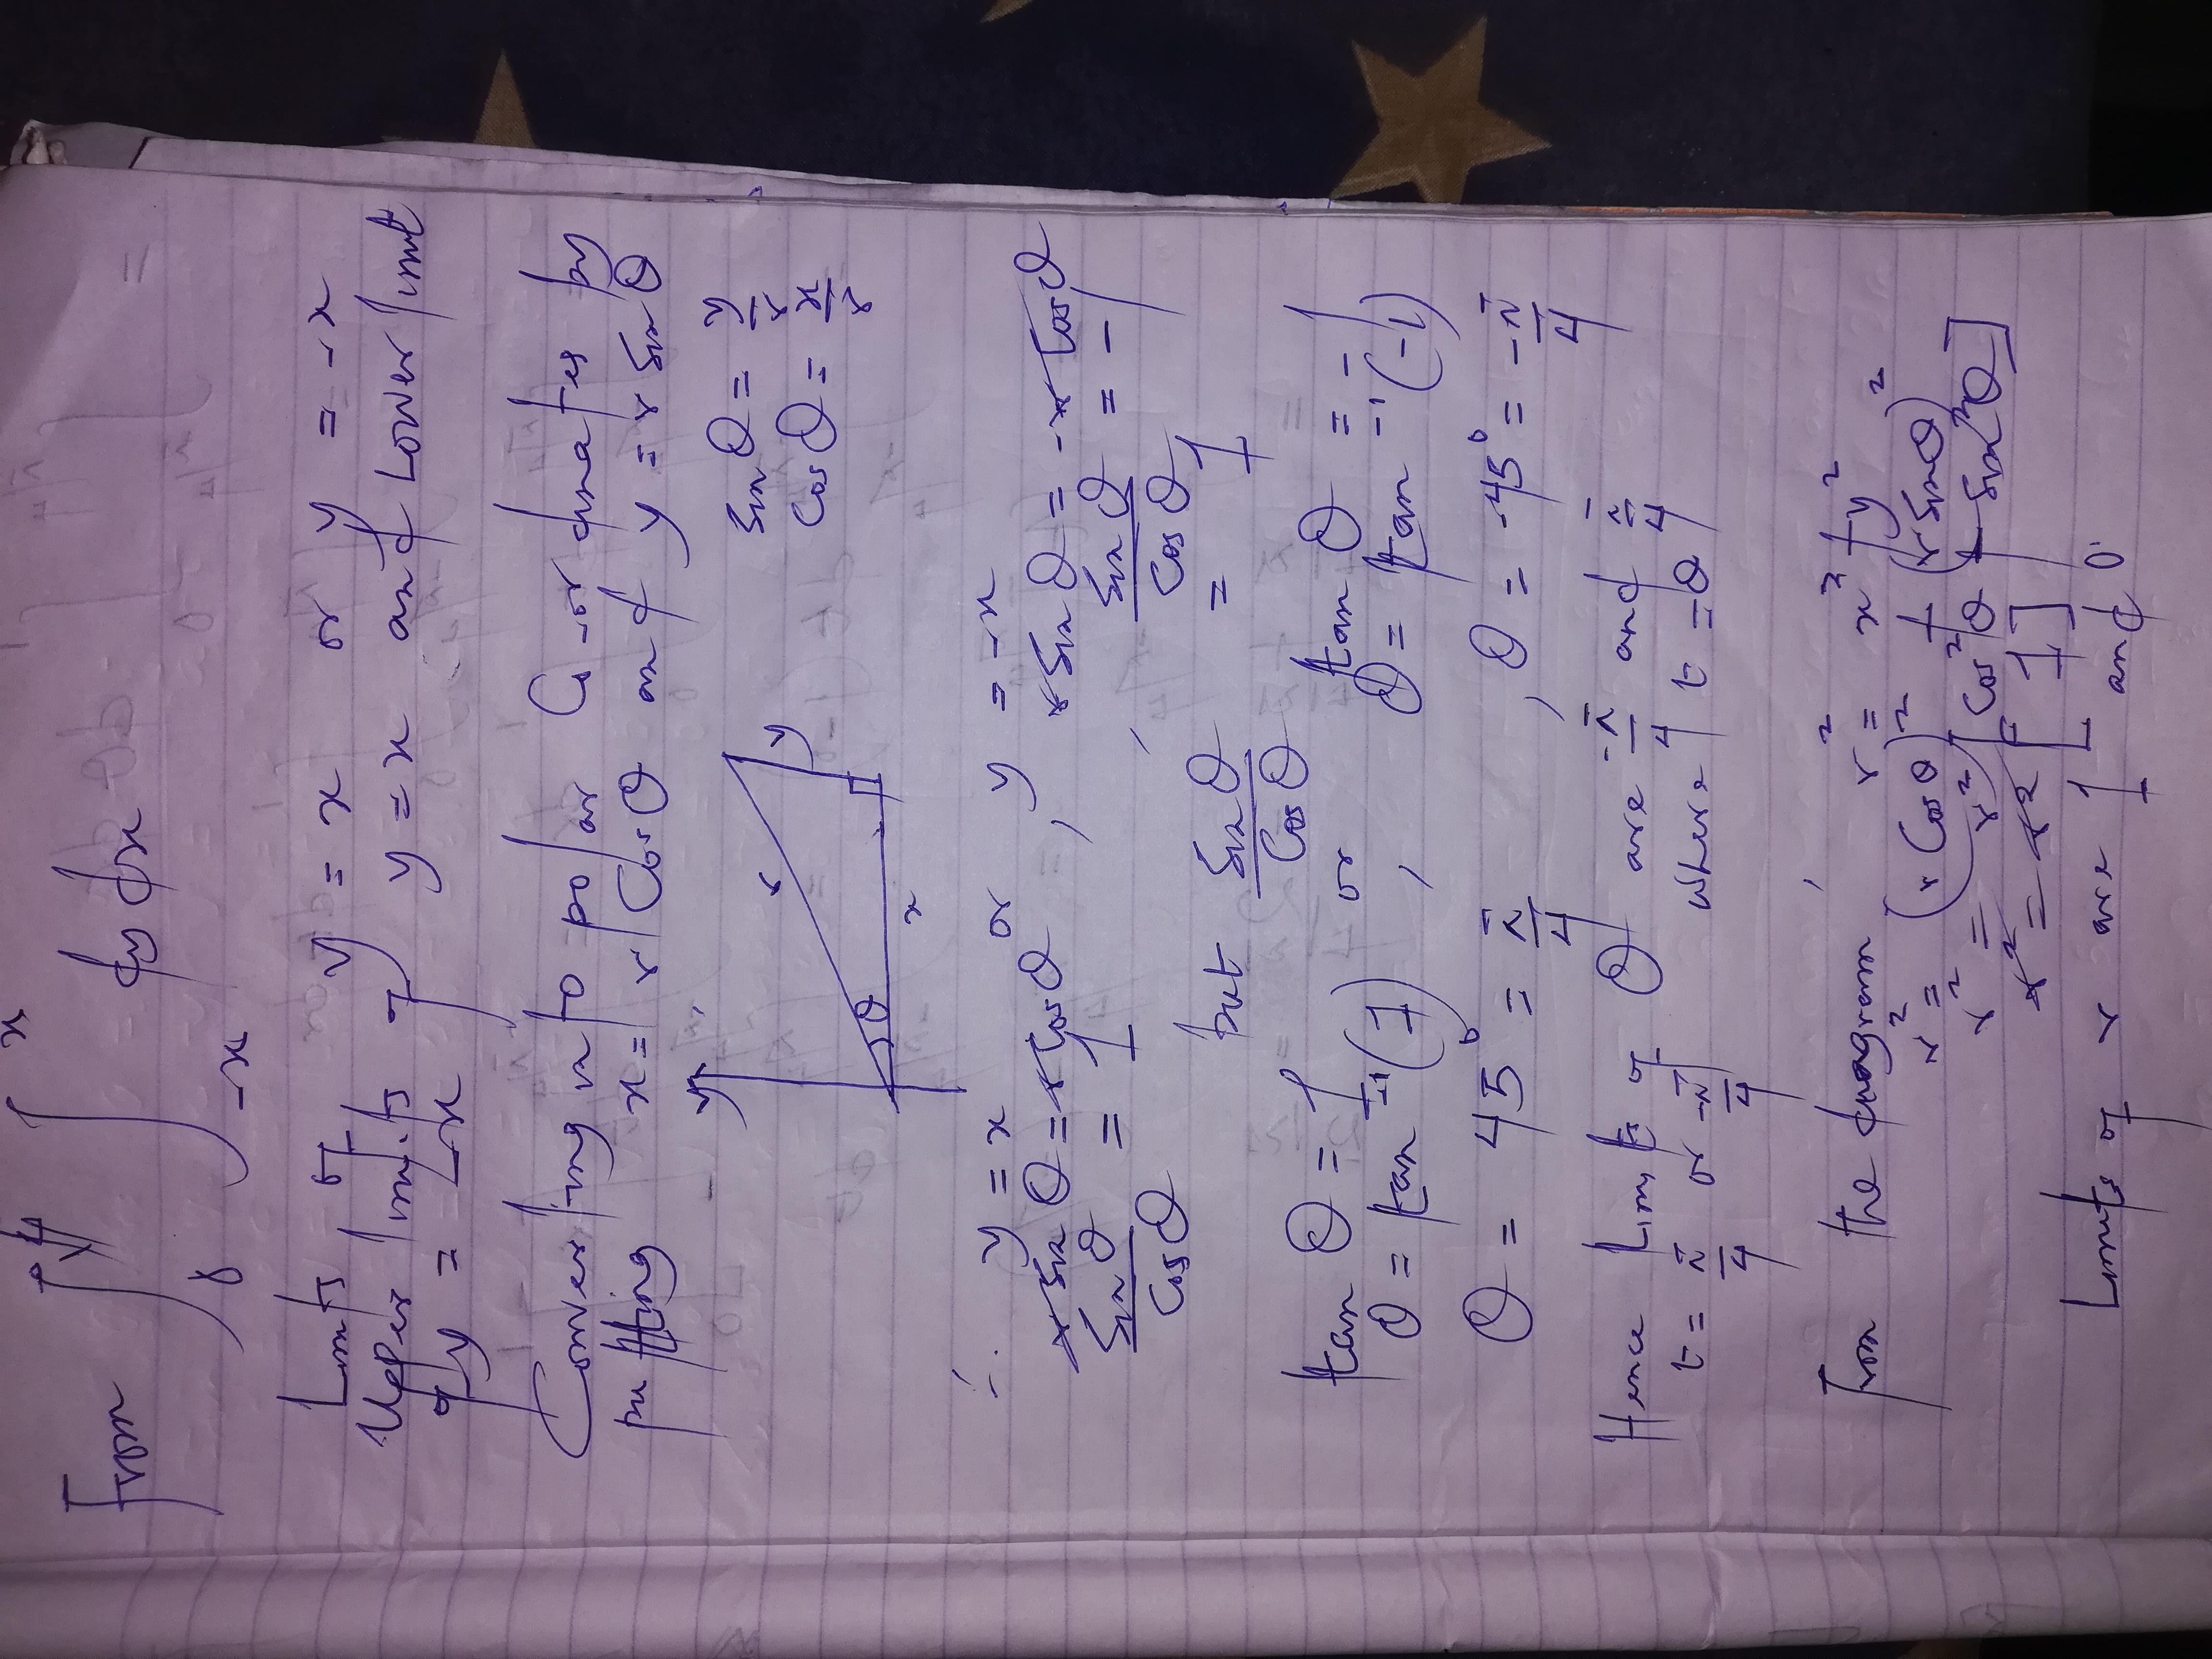 From ∫ ∫ dy dx
x
0 -x
Limits of y = x or y = -x
Upper limits of y = x and Lower limit
of y = -x
Converting into polar Co-ordinates by
putting x = r Cos θ and y = r Sin θ
y
r
y
θ
x
Sin θ = y/r
Cos θ = x/r
∴ y = x or , y = -x
r Sin θ = r Cos θ , r Sin θ = -r Cos θ
Sin θ / Cos θ = 1 Sin θ / Cos θ = -1
but Sin θ / Cos θ = 1
tan θ = 1 or tan θ = -1
θ = tan⁻¹(1) , θ = tan⁻¹(-1)
θ = 45° = π/4 , θ = -45° = -π/4
Hence Limits of θ are -π/4 and π/4
t = π/4 or -π/4 where t = θ
From the diagram , r² = x² + y²
r² = (r Cos θ)² + (r Sin θ)²
r² = r²[Cos² θ + Sin² θ]
r² = r²[1]
Limits of r are 1 and 0